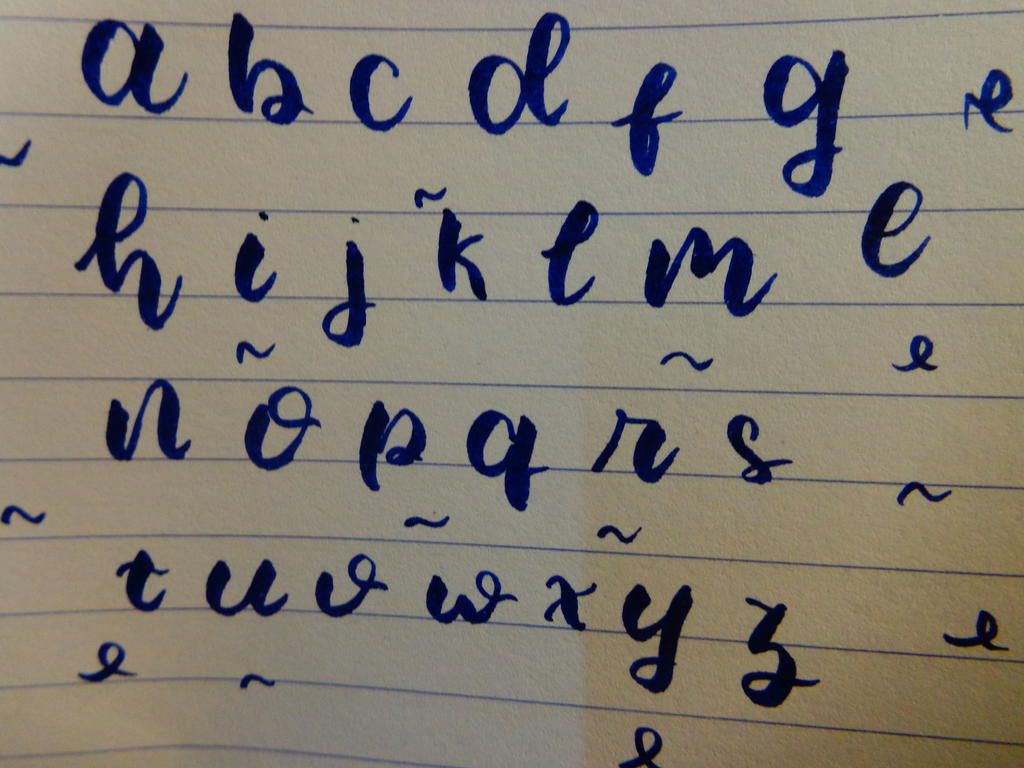 a b c d f g e
~
h i j k̃ l m e
~ ~ e
n o p q r s
~ ~ ~ ~
t u v w x y z
e ~ e
e